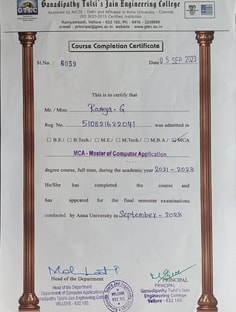 Ganadipathy Tulsi's Jain Engineering College
Approved by AICTE - Delhi and Affiliated to Anna University - Chennai
ISO 9001:2015 Certified Institution
Kaniyambadi, Vellore - 632 102.
Course Completion Certificate
Sl.No. : 6039
Date 05 SEP 2023
This is to certify that
Mr. / Miss. Ramya - G
Reg. No. 510821622041 was admitted in
B.E./ B.Tech./ M.E./ M.Tech./ M.B.A./ MCA
MCA - Master of Computer Application
degree course, full time, during the academic year 2021 - 2023
He/She has completed the course and
has appeared for the final semester examinations
conducted by Anna University in September - 2023
Head of the Department
PRINCIPAL
Head of the Department
Department of Computer Application
Ganadipathy Tulsi's Jain Engineering College
VELLORE - 632 102.
PRINCIPAL
Ganadipathy Tulsi's Jain
Engineering College
Vellore - 632 102.